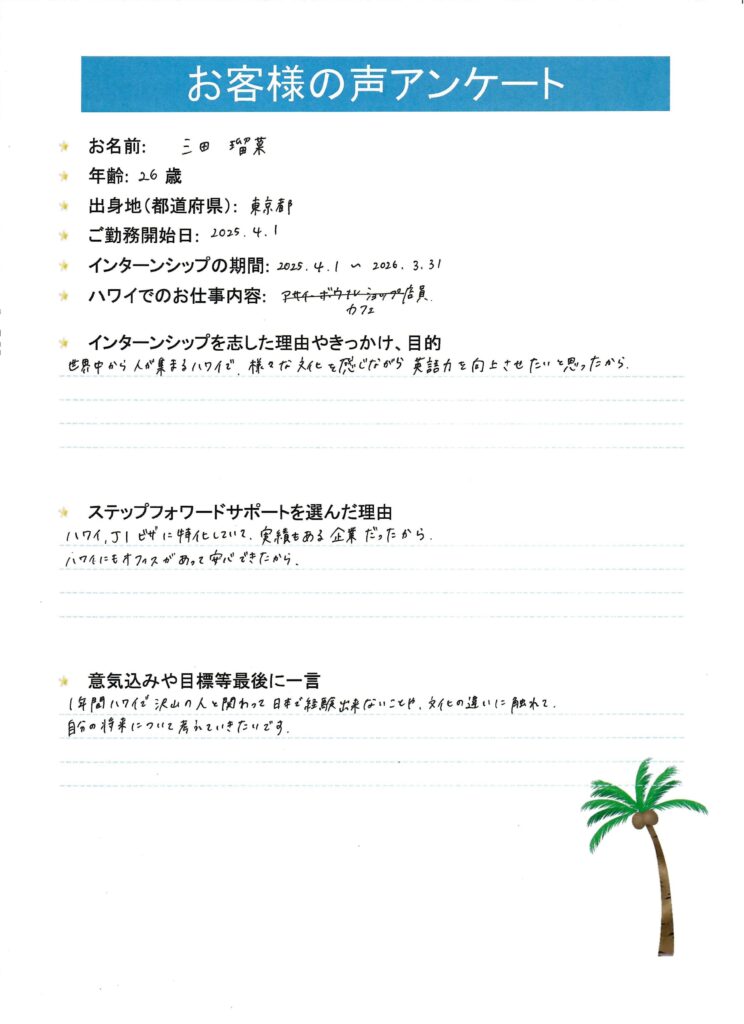 お客様の声アンケート
お名前: 三田 瑠菜
年齢: 26 歳
出身地(都道府県): 東京都
ご勤務開始日: 2025.4.1
インターンシップの期間: 2025.4.1 〜 2026.3.31
ハワイでのお仕事内容: アサイーボウルショップ店員.
カフェ
インターンシップを志した理由やきっかけ、目的
世界中から人が集まるハワイで、様々な文化を感じながら英語力を向上させたいと思ったから.
ステップフォワードサポートを選んだ理由
ハワイ,J1ビザに特化していて、実績もある企業だったから.
ハワイにもオフィスがあって安心できたから.
意気込みや目標等最後に一言
1年間ハワイで沢山の人と関わって日本で経験出来ないことや、文化の違いに触れて、
自分の将来について考えていきたいです.